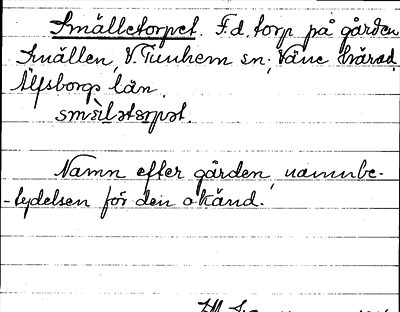 Smälletorpet. F.d. torp på gården
Smällen, V. Tunhem sn; Väne härad,
Älfsborgs län.
Namn efter gården, namnbe-
-tydelsen för den okänd.